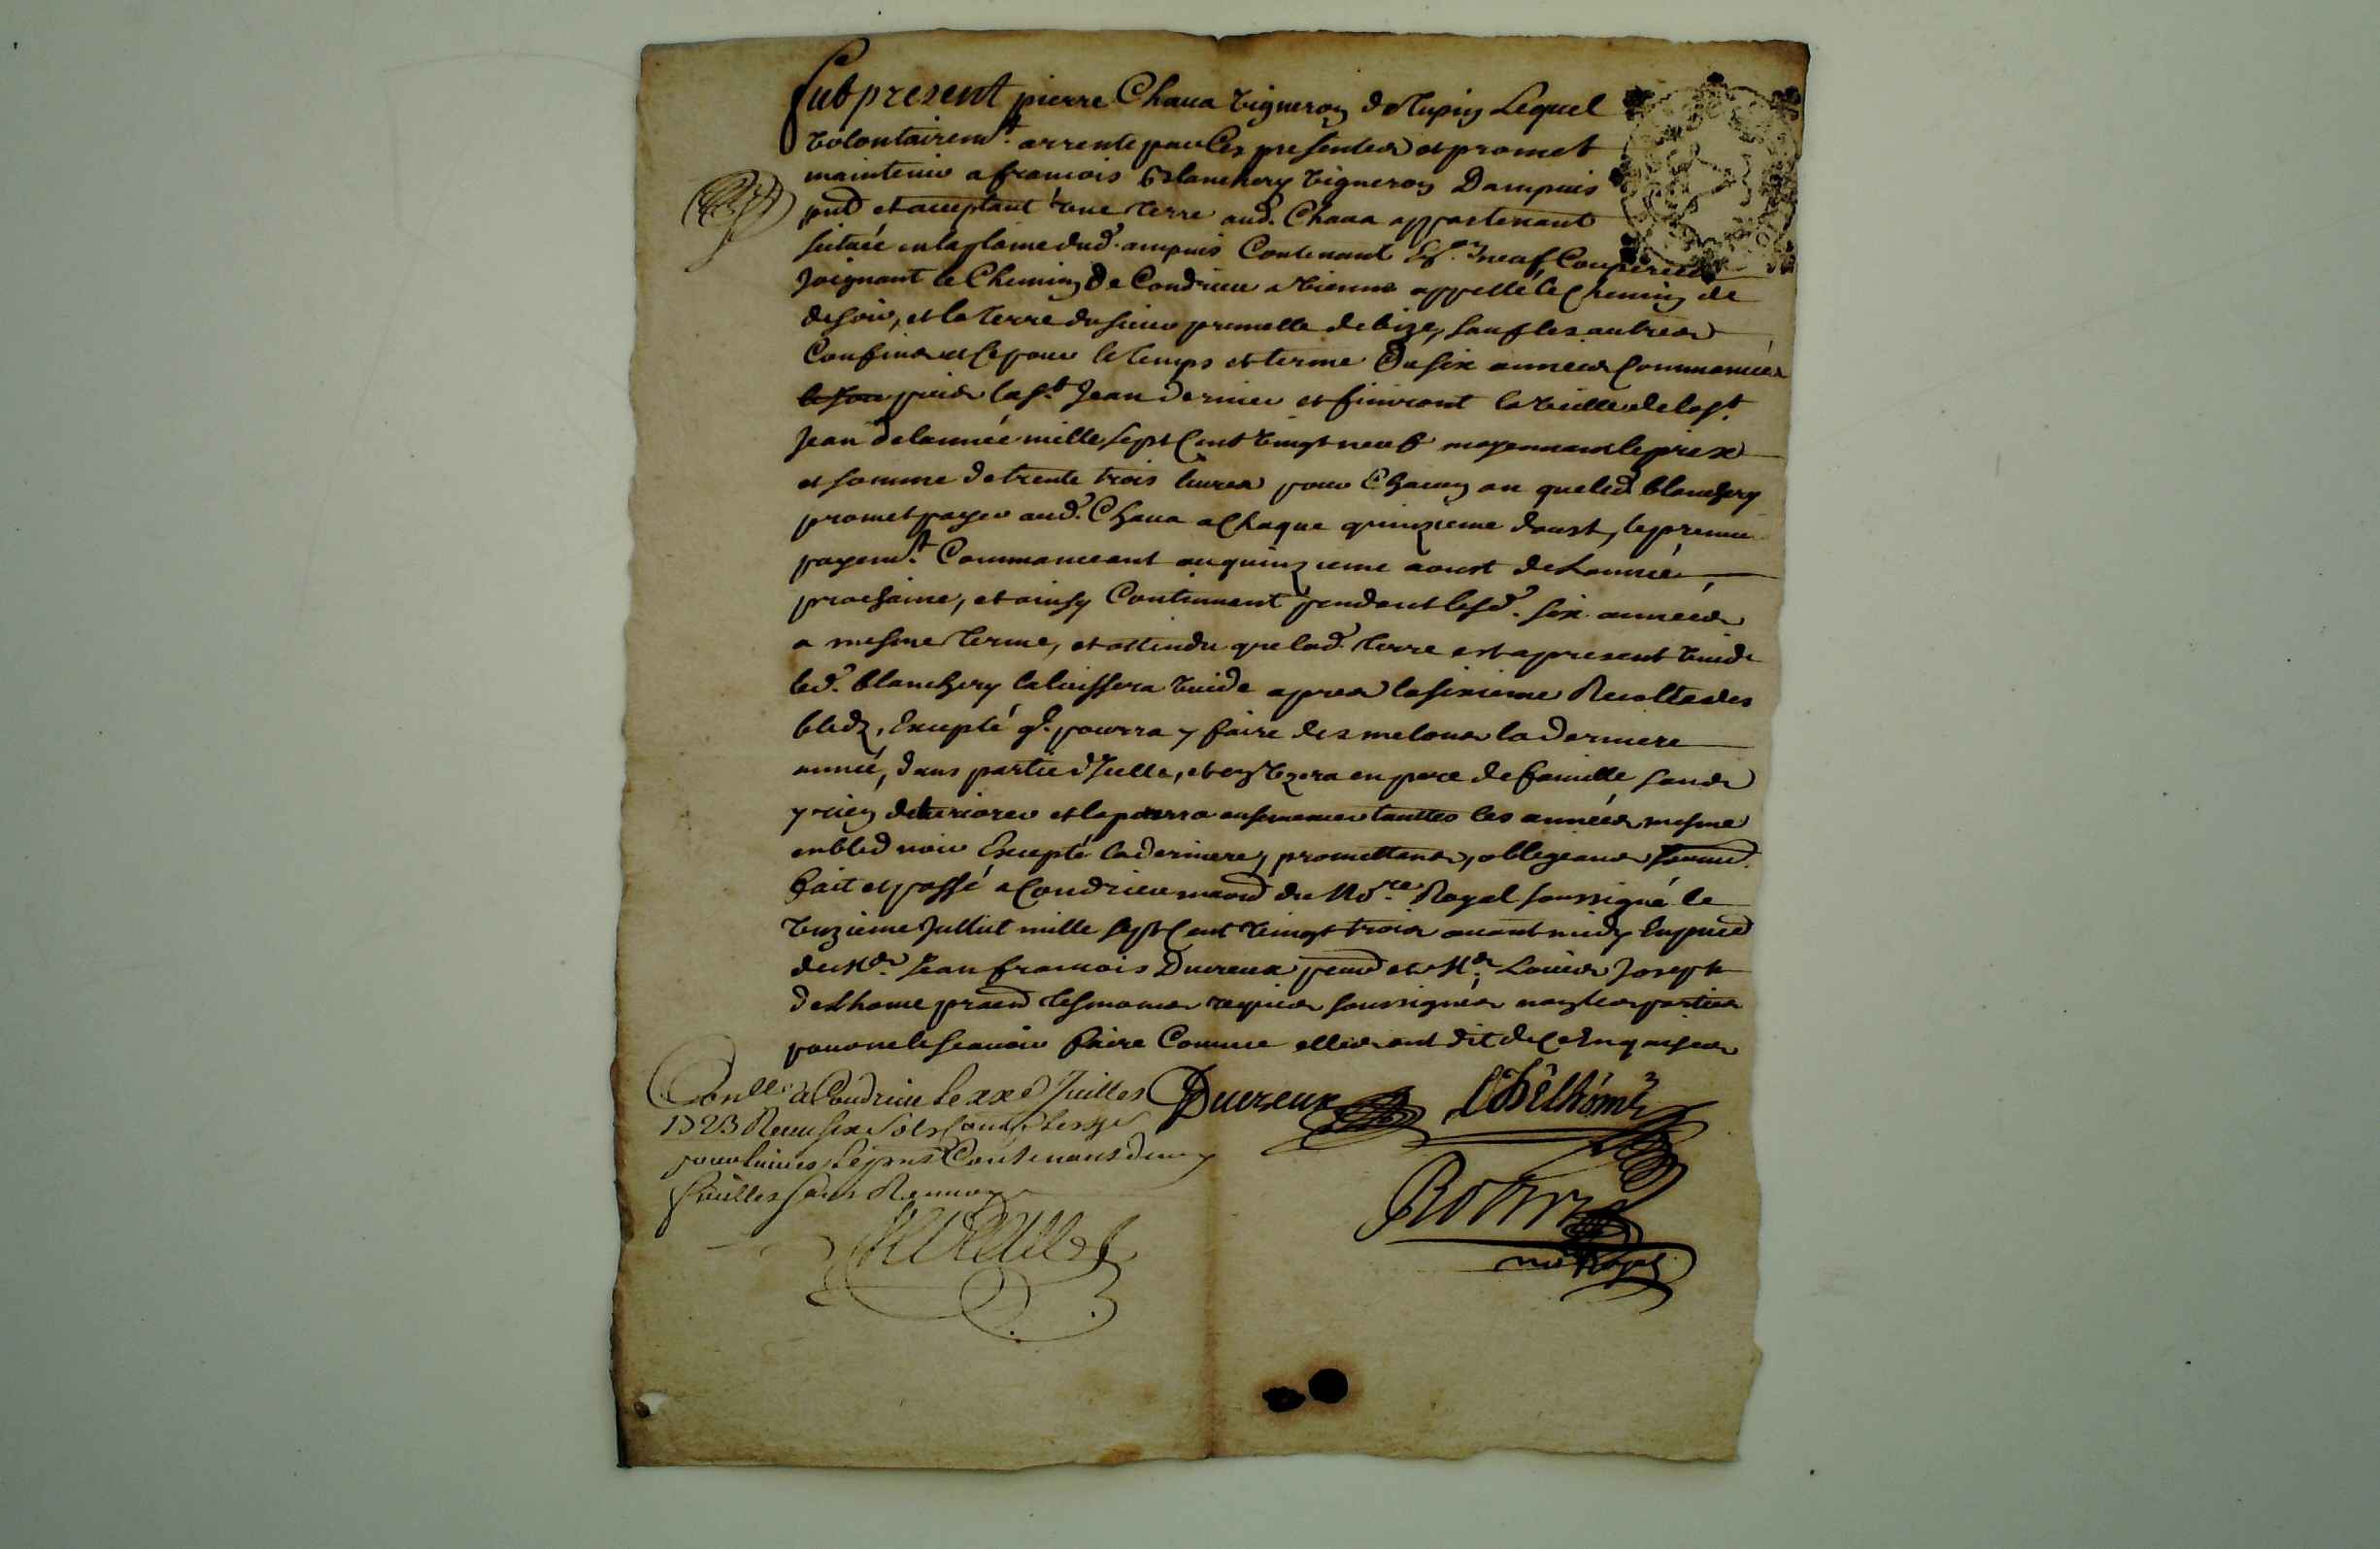 fut present pierre Chaua vigneron de tupin Lequel
volontairem.t arrente par les presentes et promet
maintenir a francois Blanchery vigneron Dampuis
pnt et acceptant une terre aud. Chaua appartenant
située en la plaine dud. ampuis Contenant neuf Couperées
joignant le Chemin De Condrieu a Vienne appellé le Chemin de
de soir, et la terre du sieur prunelle de bize, sauf les autres
Confins et ce pour le temps et terme De six années Commencées
puis la s.t Jean dernier et finiront la veille de la s.t
Jean de lannée mille sept Cent vingt neuf moyennant le prix
et somme de trente trois livres pour Chacun an que led. blanchery
promet payer aud. Chaua a Chaque quinzieme doust, le premier
payem.t Commanceant au quinzieme aoust de Lannée
prochaine, et ainsy Continuant pendant lesd. six années
a mesme terme, et attendu que lad. terre est a present vuide
led. blanchery la laissera vuide apres la sixieme Recolte des
bledz, Excepté q.l pourra y faire des melons la derniere
année, dans partie dIcelle, et en vzera en pere de famille sans
y rien deteriorer et la pourra ensemencer touttes les années mesme
en bled noir Excepté la derniere, promettans, obligeans
fait et passé a Condrieu maison du No.re Royal soussigné le
vnzieme Juillet mille sept Cent vingt trois avant midy En pnce
de M.r Jean francois Ducreux et M.r Louis Joseph
delhome tesmoins requis soussignés non les parties
pour ne le scauoir faire Comme elles ont dit de Ce Enquises
Conllé a Condrieu le xxe Juillet
1723 Receu six sols
Contenant deux
feuilles sans Renuoy
Ducreux
Delhome
no.re Royal